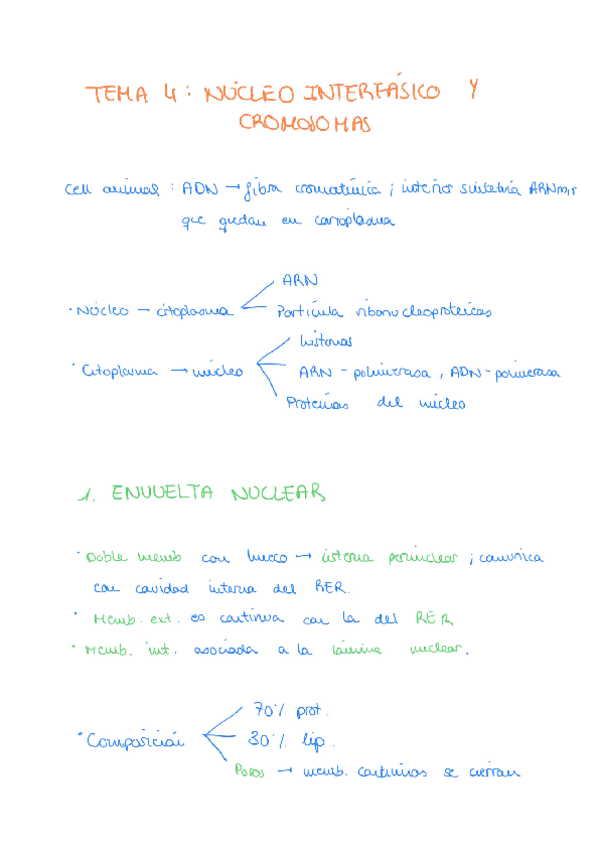 TEMA 4: NÚCLEO INTERFÁSICO Y
CROMOSOMAS
cell animal: ADN → fibra cromatínica; interior sintetiza ARNmr
que quedan en carioplasma
· Núcleo → citoplasma
ARN
Partícula ribonucleoproteicas
· Citoplasma → núcleo
histonas
ARN-polimerasa, ADN-polimerasa
Proteínas del núcleo
1. ENVUELTA NUCLEAR
· Doble memb con hueco → cisterna perinuclear; comunica
con cavidad interna del RER.
· Memb. ext. es continua con la del RER
· Memb. int. asociada a la lámina nuclear.
· Composición
70% prot.
30% lip.
Poros → memb. continuas se cierran